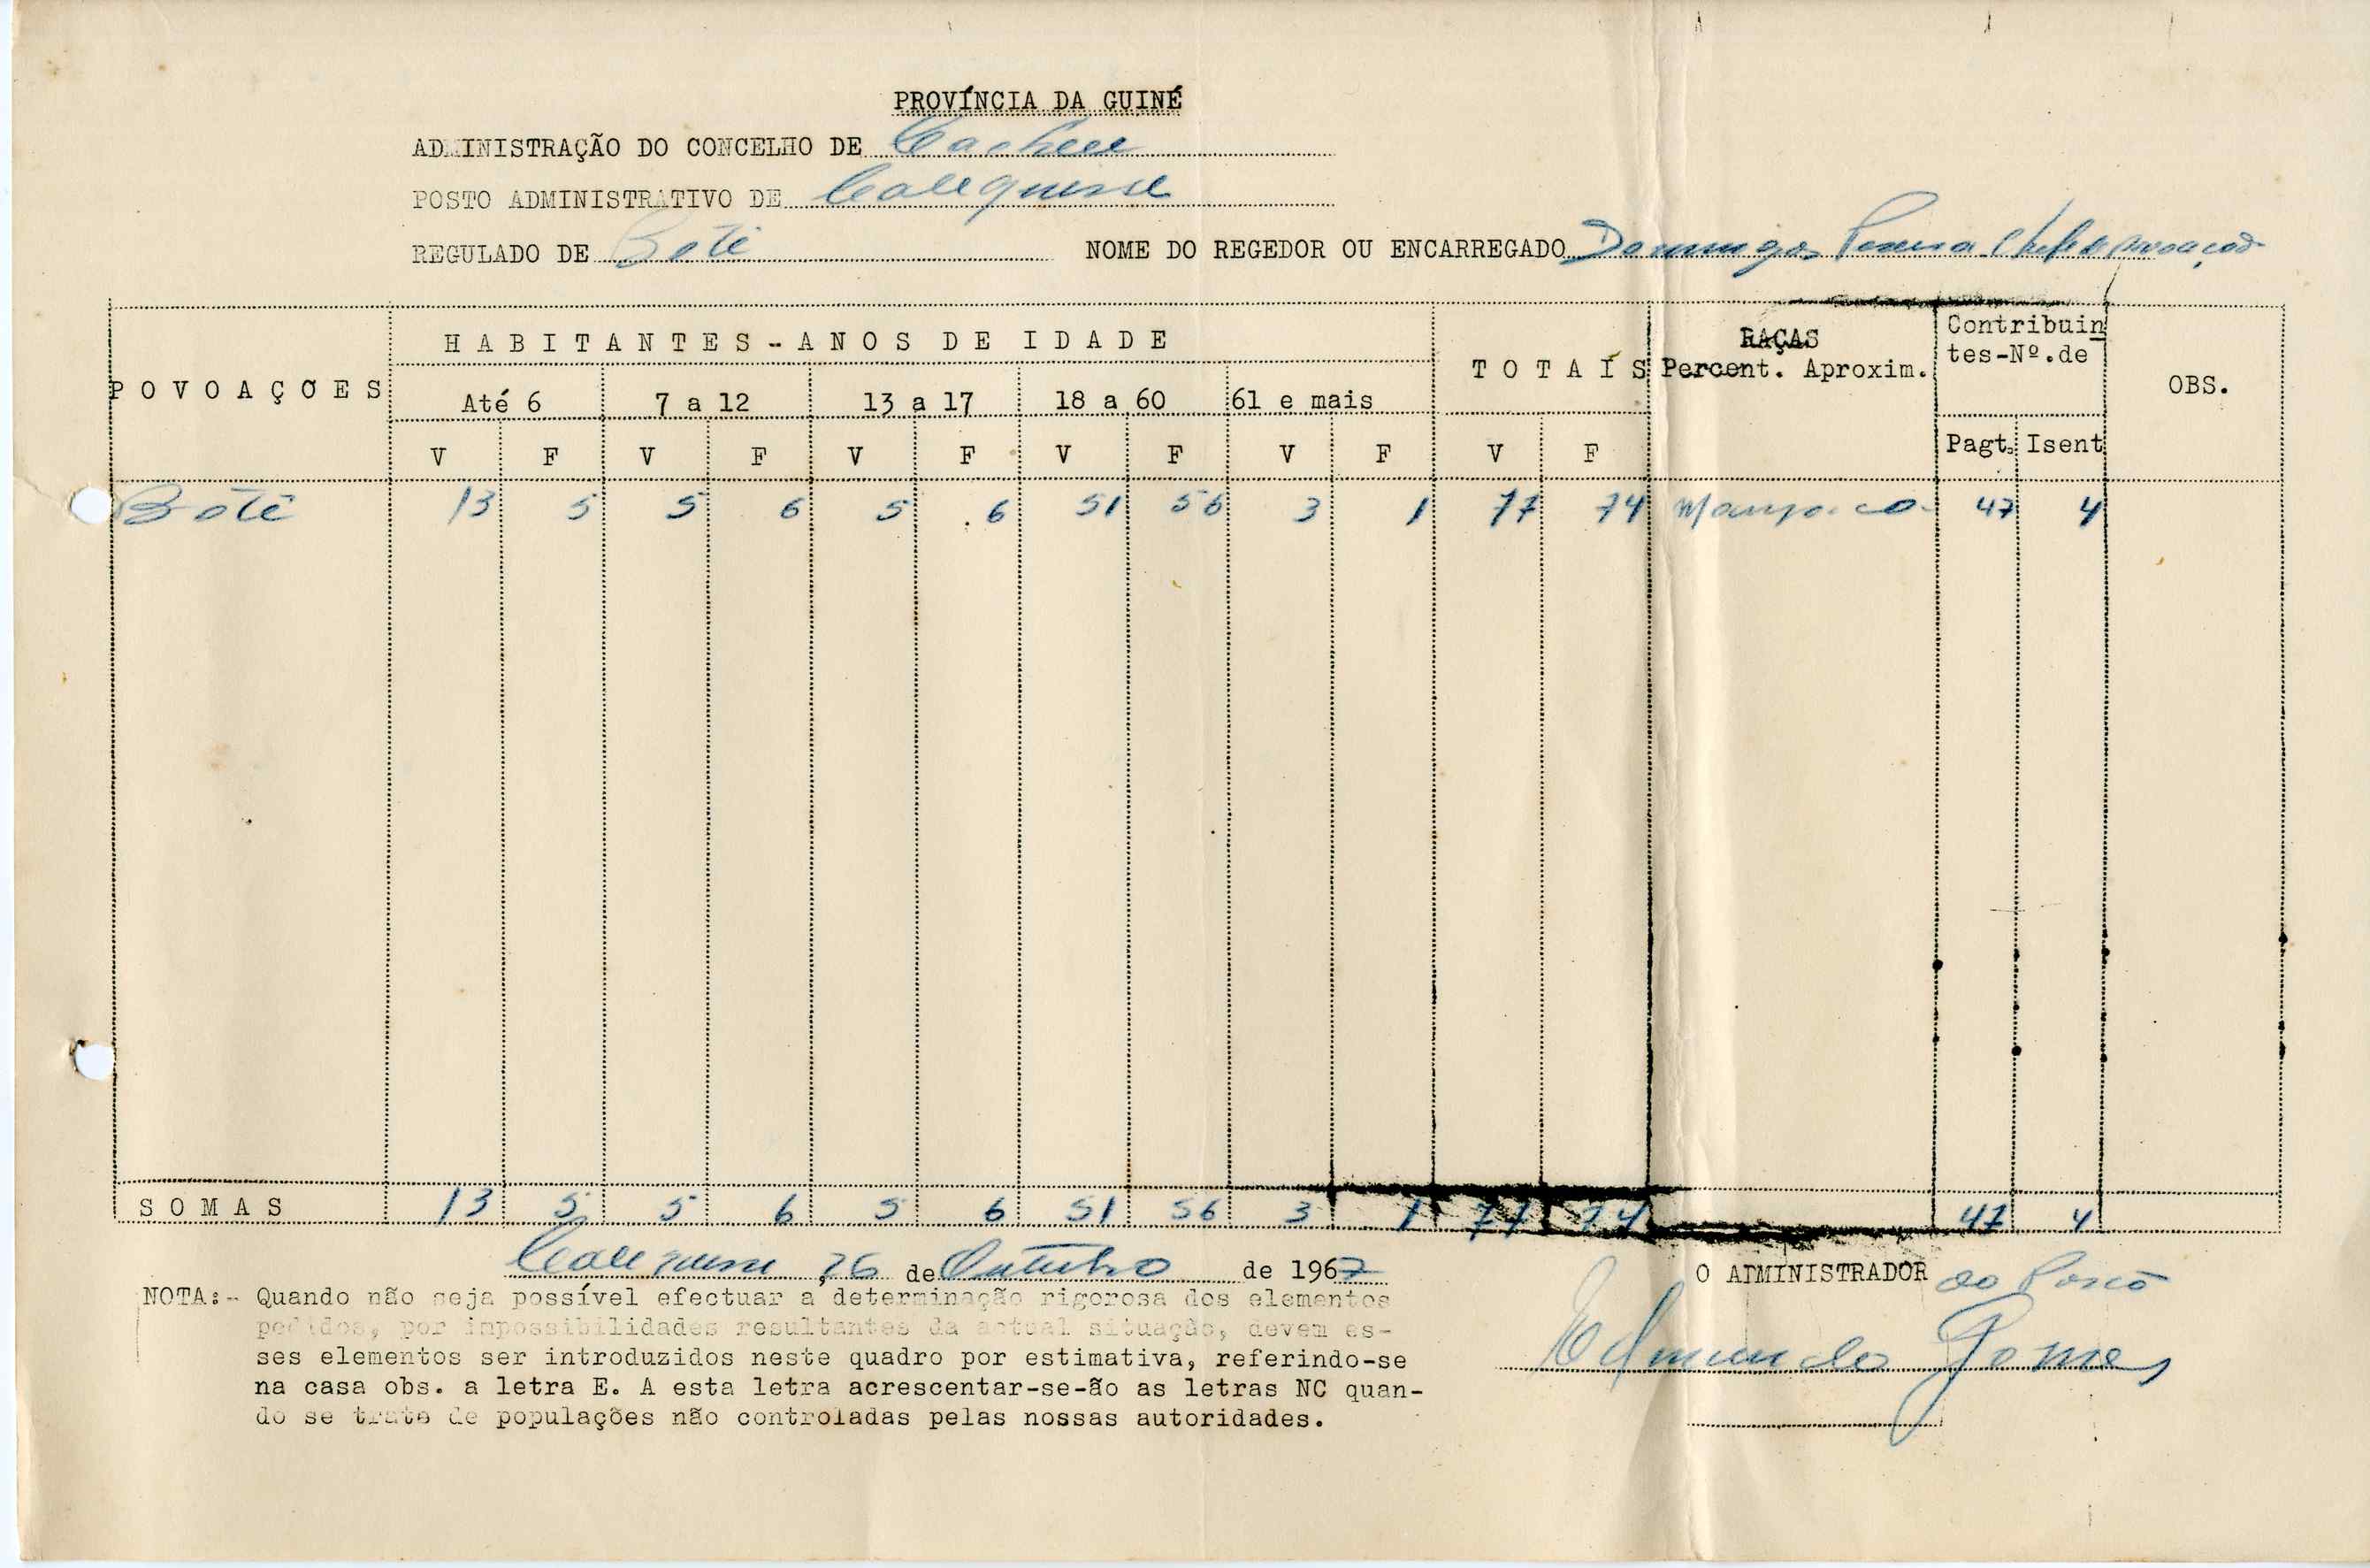 PROVÍNCIA DA GUINÉ
ADMINISTRAÇÃO DO CONCELHO DE Cacheu
POSTO ADMINISTRATIVO DE Calequisse
REGULADO DE Botê NOME DO REGEDOR OU ENCARREGADO Domingos Pereira Chefe povoação
POVOAÇOES HABITANTES-ANOS DE IDADE TOTAIS RAÇAS Percent. Aproxim. Contribuin tes-Nº.de OBS.
Até 6 7 a 12 13 a 17 18 a 60 61 e mais
V F V F V F V F V F V F Pagt. Isent
Botê 13 5 5 6 5 6 51 56 3 1 77 74 Manjaco 47 4
SOMAS 13 5 5 6 5 6 51 56 3 1 77 74 47 4
Calequisse, 26 de Outubro de 1967
O ADMINISTRADOR do Posto
NOTA:- Quando não seja possível efectuar a determinação rigorosa dos elementos
pedidos, por impossibilidades resultantes da actual situação, devem es-
ses elementos ser introduzidos neste quadro por estimativa, referindo-se
na casa obs. a letra E. A esta letra acrescentar-se-ão as letras NC quan-
do se trate de populações não controladas pelas nossas autoridades.
Edmundo Gomes